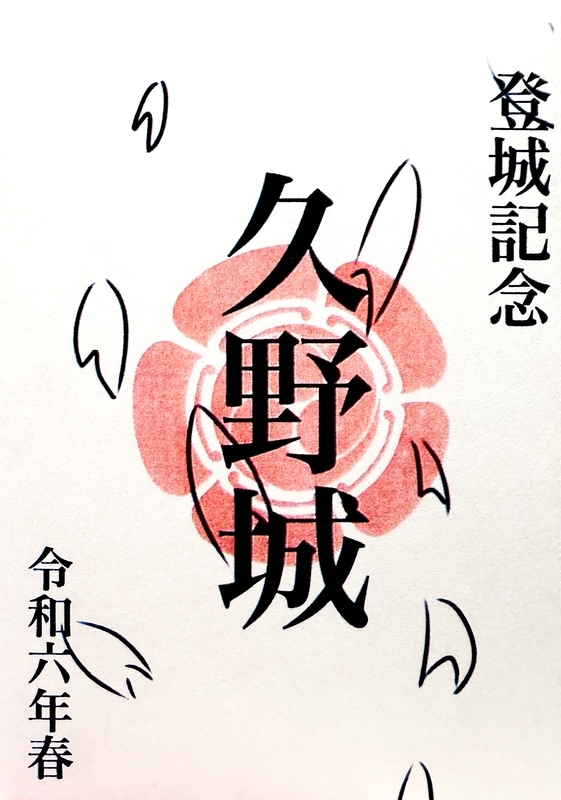 登城記念
久野城
令和六年春